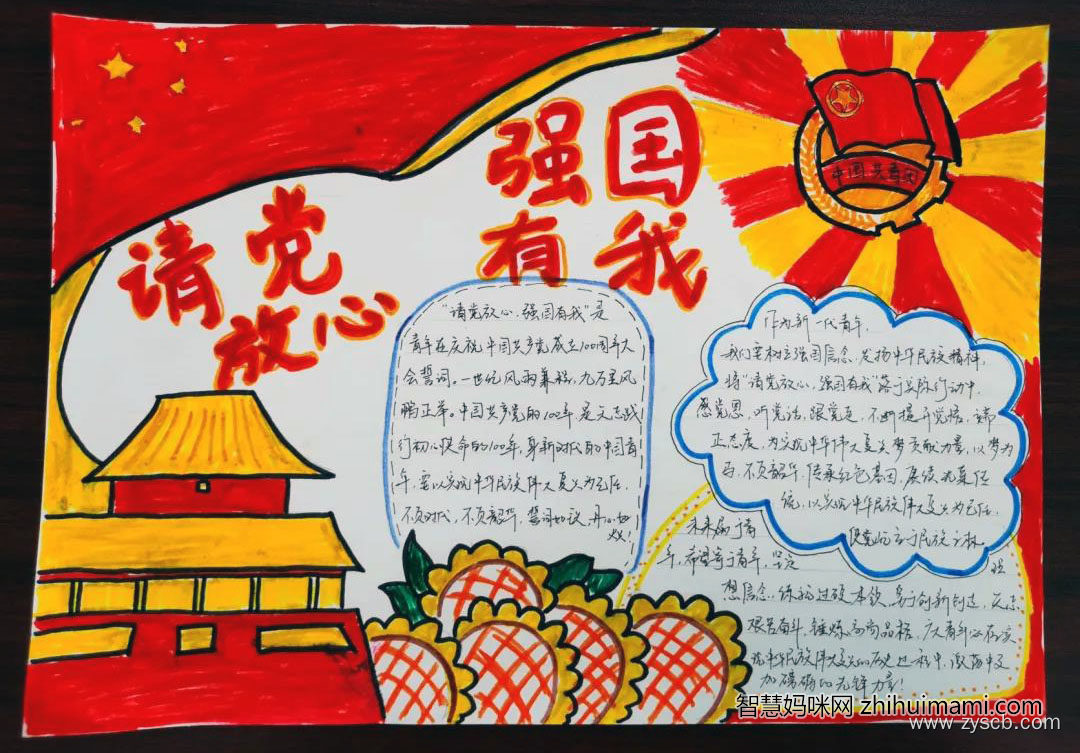 强国
有我
请党
放心
中国共青团
"请党放心,强国有我"是
青年在庆祝中国共产党成立100周年大
会誓词。一世纪风雨兼程,九万里风
鹏正举。中国共产党的100年是矢志践
行初心使命的100年,身新时代的中国青
年,要以实现中华民族伟大复兴为己任,
不负时代,不负韶华,誓词如议,丹心如
作为新一代青年,
我们要树立强国信念,发扬中华民族精神,
将"请党放心,强国有我"落于实际行动中,
感党恩,听党话,跟党走,不断提升觉悟,端
正态度,为实现中华伟大复兴梦贡献力量,以梦为
马,不负韶华,传承红色基因,赓续
统,以实现中华民族伟大复兴为己任,
使党屹立于民族之林。
未来属于青
年,希望寄予青年,坚定
理
想信念,练就过硬本领,勇于创新创造,矢志
艰苦奋斗,锤炼高尚品格,广大青年必在实
现中华民族伟大复兴的历史过程中,激荡中更
加磅礴的先锋力量!
智慧妈咪网 zhihuimami.com
www.zyscb.com